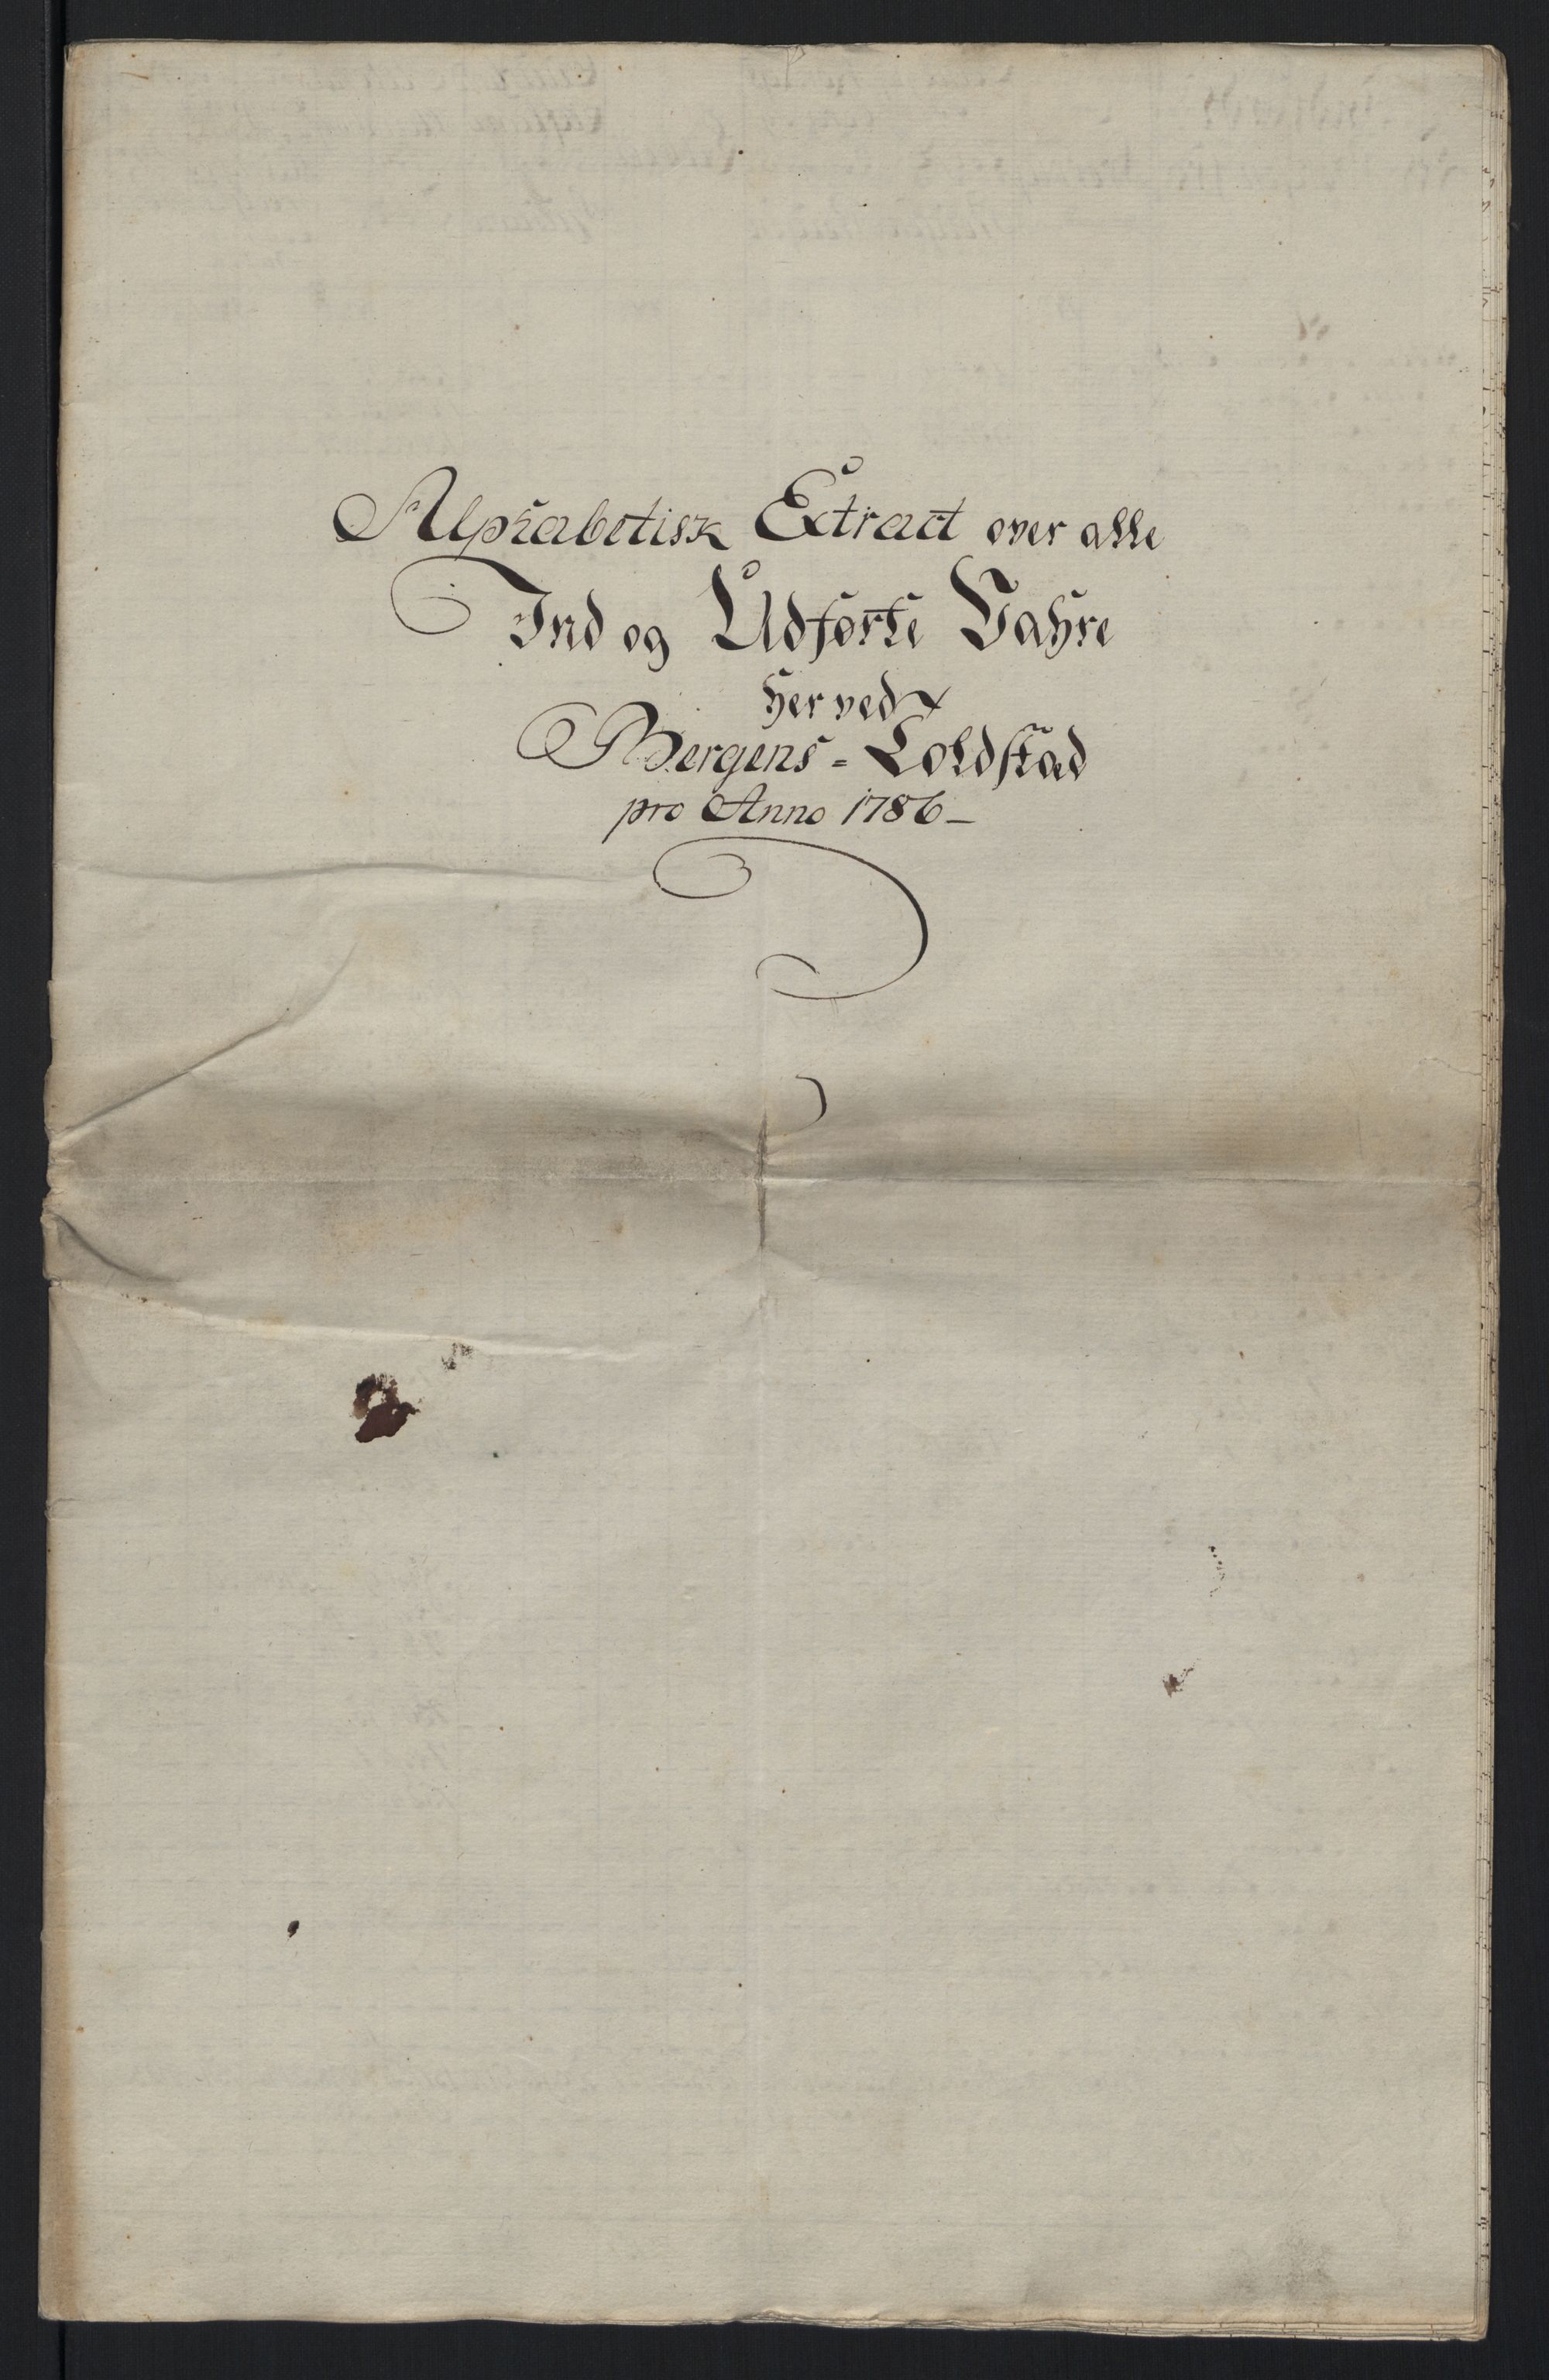 Alphabetisk Extract over alle
Ind og Udførte Vahre
her ved
Bergens = Toldstæd
pro Anno 1786 _